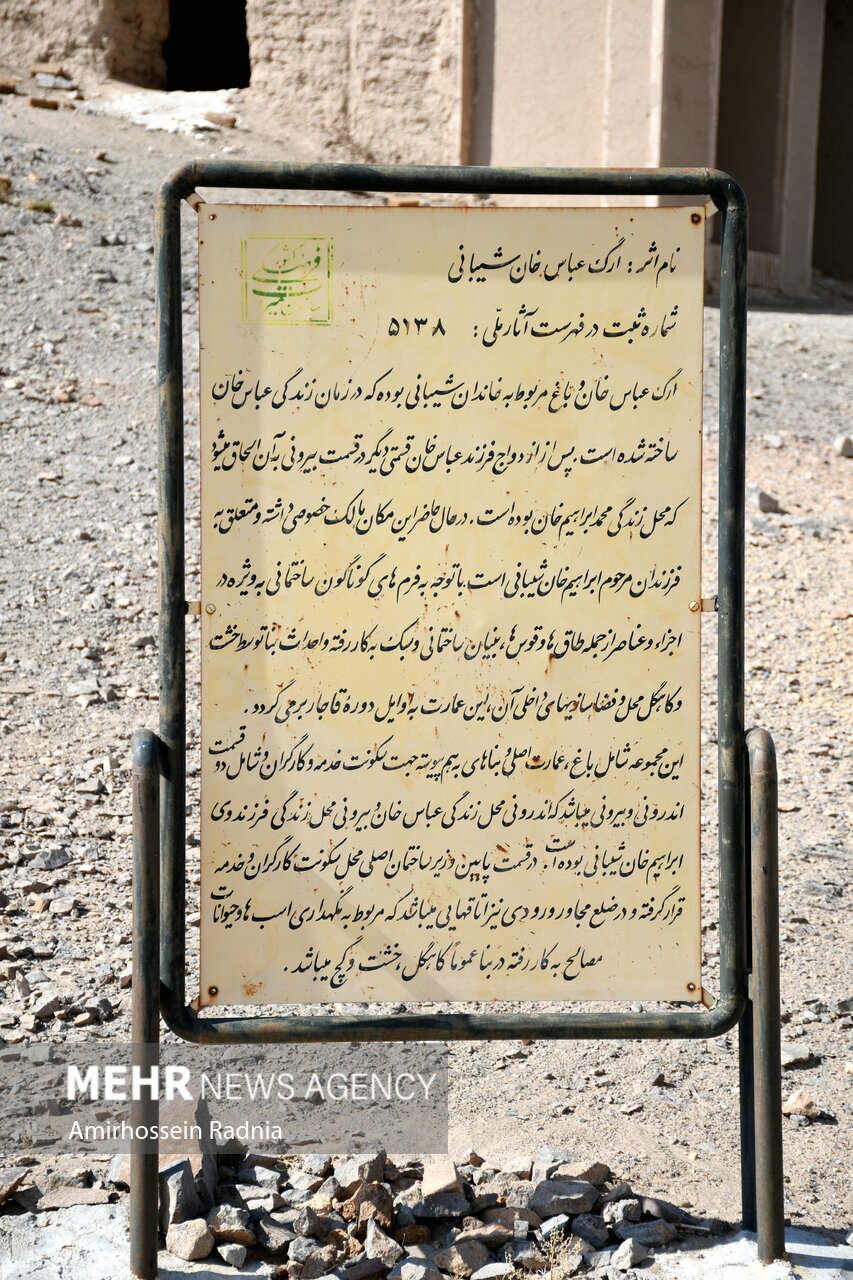 نام اثر : ارگ عباس خان شیبانی
شماره ثبت در فهرست آثار ملّی : ۵۱۳۸
ارگ عباس خان و باغ مربوط به خاندان شیبانی بوده که در زمان زندگی عباس خان
ساخته شده است . پس از ازدواج فرزند عباس خان قسمتی دیگر در قسمت بیرونی به آن الحاق میشود
که محل زندگی محمد ابراهیم خان بوده است . در حال حاضر این مکان مالک خصوصی داشته و متعلق به
فرزندان مرحوم ابراهیم خان شیبانی است . با توجه به فرم های گوناگون ساختمانی به ویژه در
اجزاء و عناصر از جمله طاق ها و قوس ها ، بنیان ساختمانی و سبک به کار رفته و احداث بنا توسط خشت
و کاهگل محل و فضا سازیهای داخلی آن ، این عمارت به اوایل دورهٔ قاجار بر می گردد .
این مجموعه شامل باغ ، عمارت اصلی و بناهای به هم پیوسته جهت سکونت خدمه و کارگران و شامل دو قسمت
اندرونی و بیرونی میباشد که اندرونی محل زندگی عباس خان و بیرونی محل زندگی فرزند وی
ابراهیم خان شیبانی بوده است . در قسمت پایین و زیر ساختمان اصلی محل سکونت کارگران و خدمه
قرار گرفته و در ضلع مجاور ورودی نیز اتاقهایی میباشد که مربوط به نگهداری اسب ها و حیوانات
مصالح به کار رفته در بنا عموماً کاهگل ، خشت و گچ میباشد .
MEHR NEWS AGENCY
Amirhossein Radnia